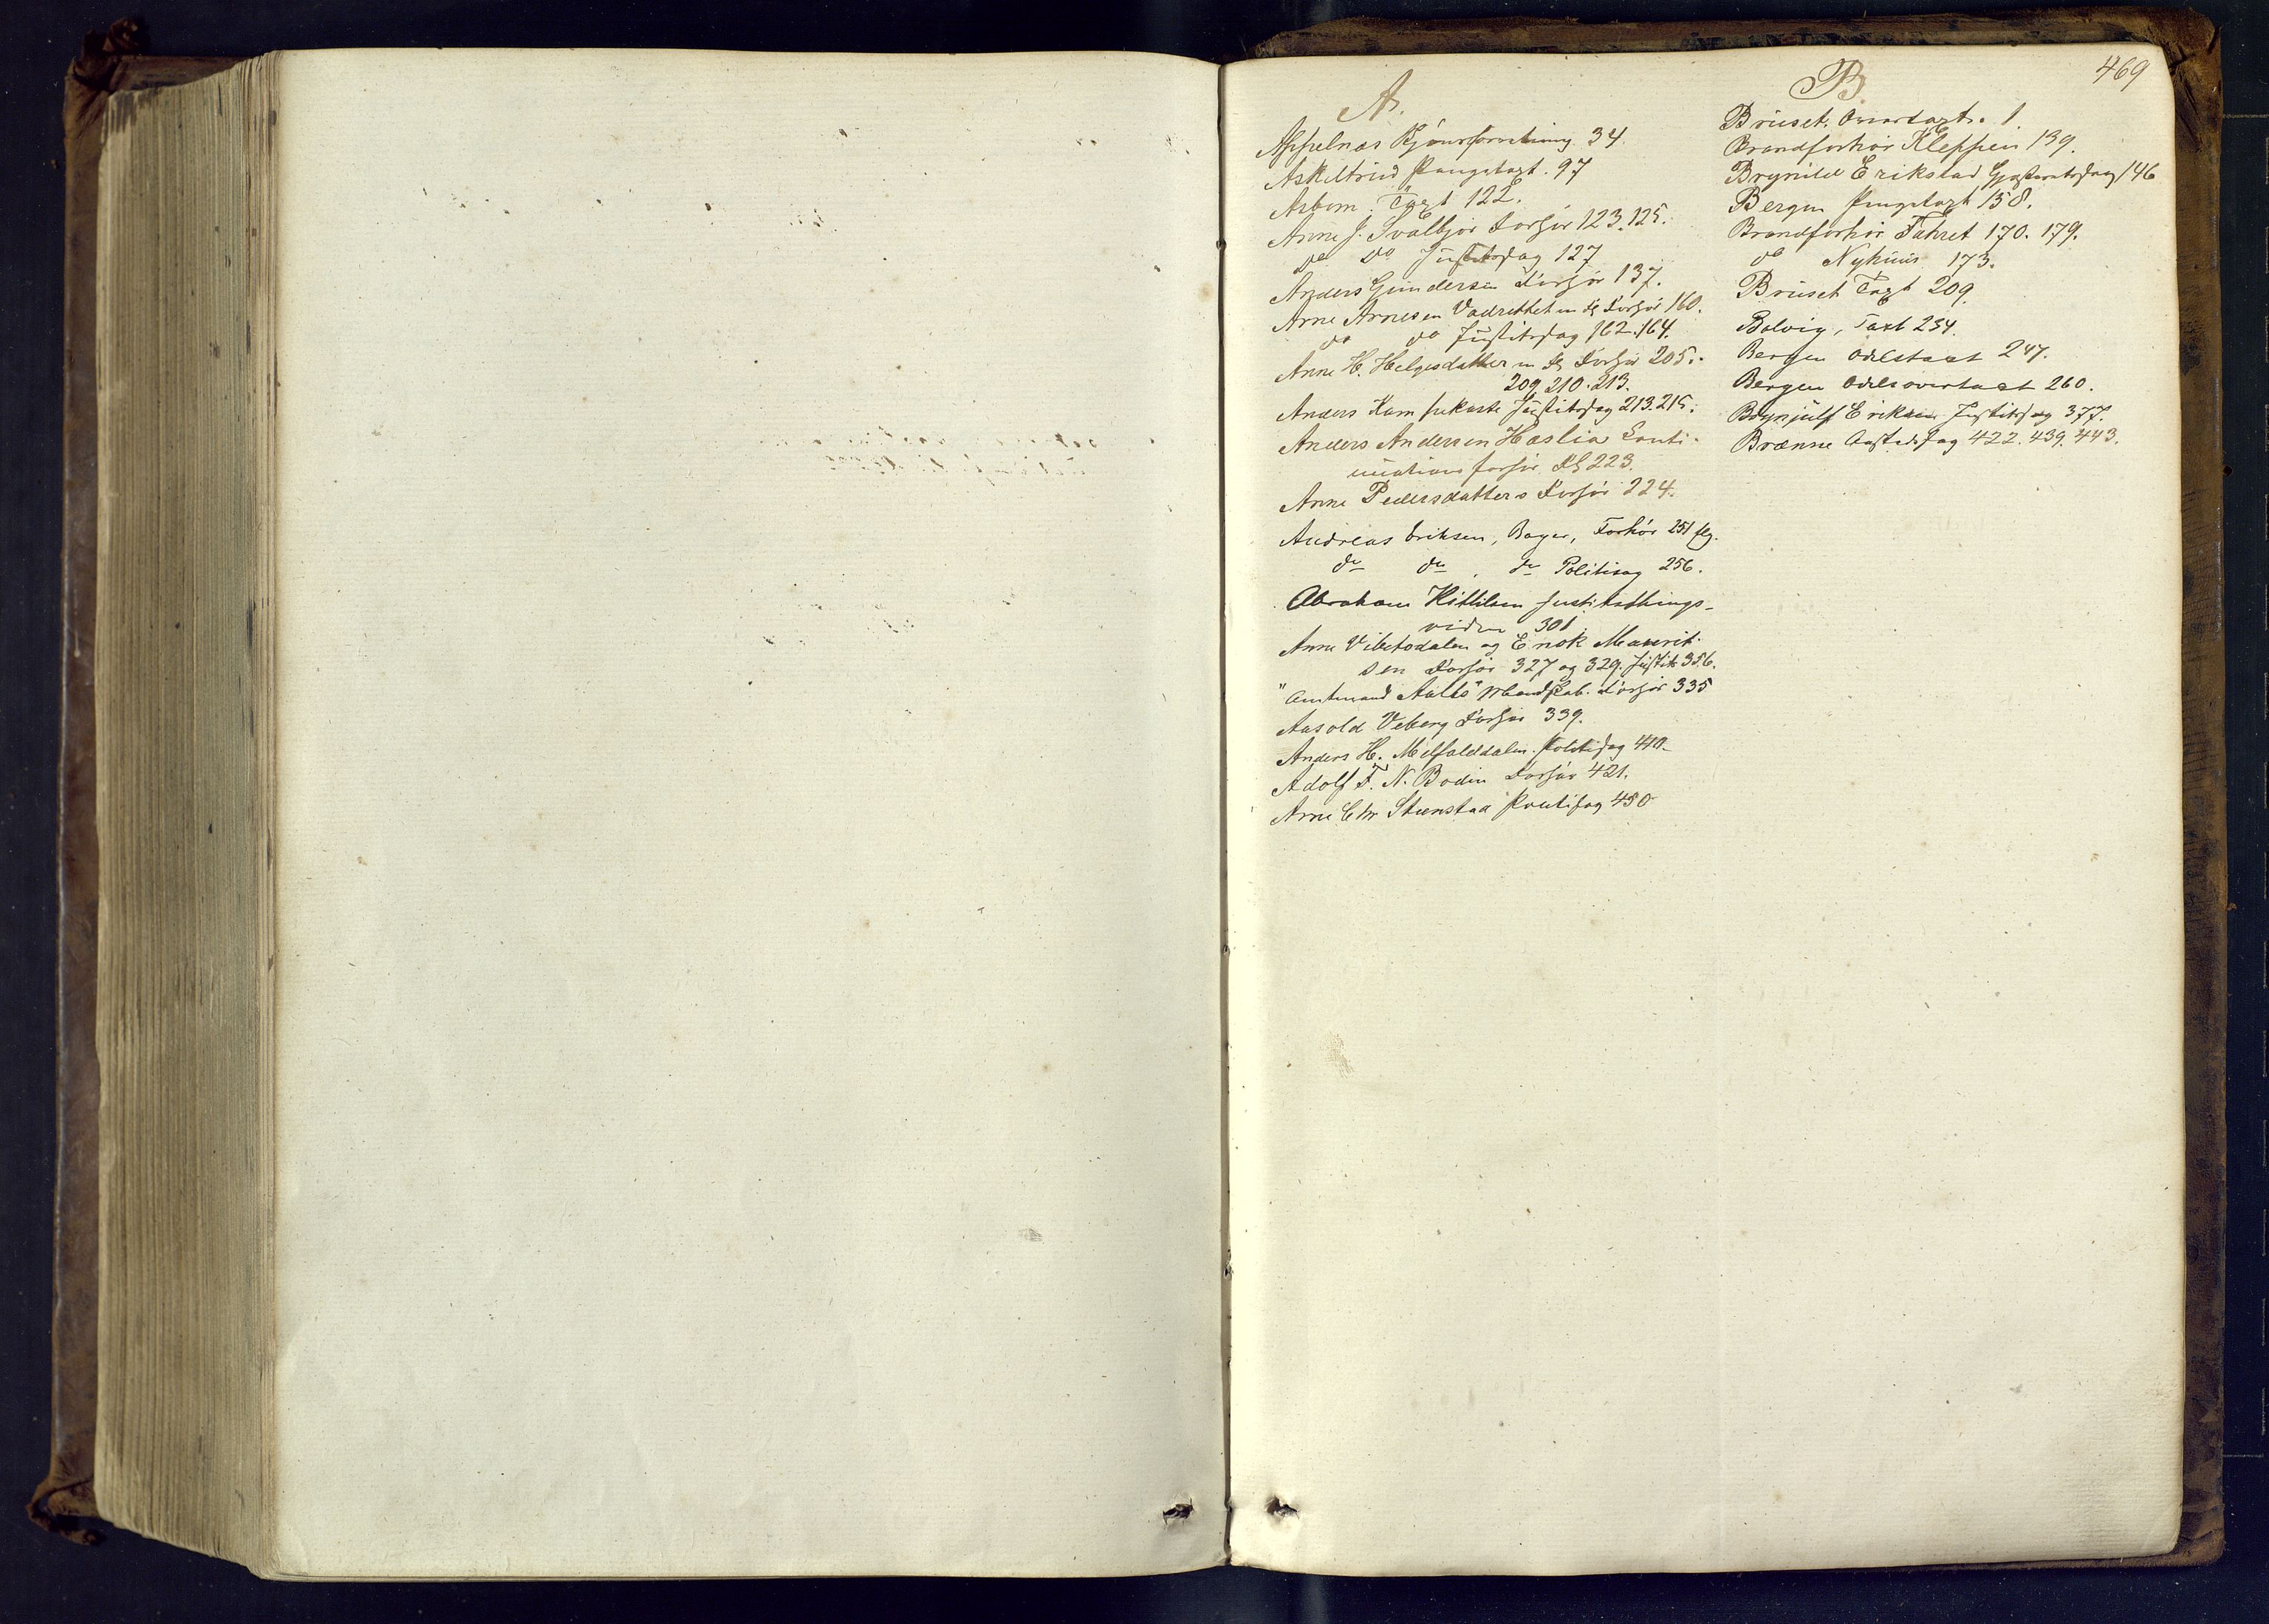 469
A.
Appelnæs Skjønsforretning 34.
Askiltrud Pangetaxt. 97
Asbem. Taxt 122.
Anne J. Svalbjør Forhør 123. 125.
do do Justitssag 127
Anders Gundersen Forhør 137.
Arne Arnesen Vadrettet m fl Forhør 160.
do do Justitssag 162. 164.
Anne H. Helgesdatter m fl Forhør 205.
209. 210. 213.
Anders Kam Justitssag 213. 215.
Anders Andersen Haslia Conti-
nuations forhør 223.
Anne Pedersdatters Forhør 224.
Andreas Eriksen, Bager, Forhør 251 flg.
do do, do Politisag 256.
Abraham Kittilsen Justitsthings-
vidne 301.
Anne Vibetodalen og Enok Maurit-
sen Forhør 327 og 329. Justits 356.
"Amtmand Aalls" Mandskab. Forhør 335
Aasold Veberg Forhør 339.
Anders H. Melfalddalen. Politisag 410.
Adolf F. N. Bodin Forhør 421.
Arne Stenstad Politisag 450
B.
Bruset. Overtaxt. 1.
Brandforhør Kleppen 139.
Brynild Erikstad Gjæsteretssag 146
Bergen Pengetaxt 158.
Brandforhør Fahret 170. 179.
do Nyhuus 173.
Bruset Taxt 209.
Bolvig, Taxt 234.
Bergen Odelstaxt 247.
Bergen Odelsovertaxt 260.
Brynjulf Eriksen Justitssag 377.
Brænne Aastedssag 422. 439. 443.